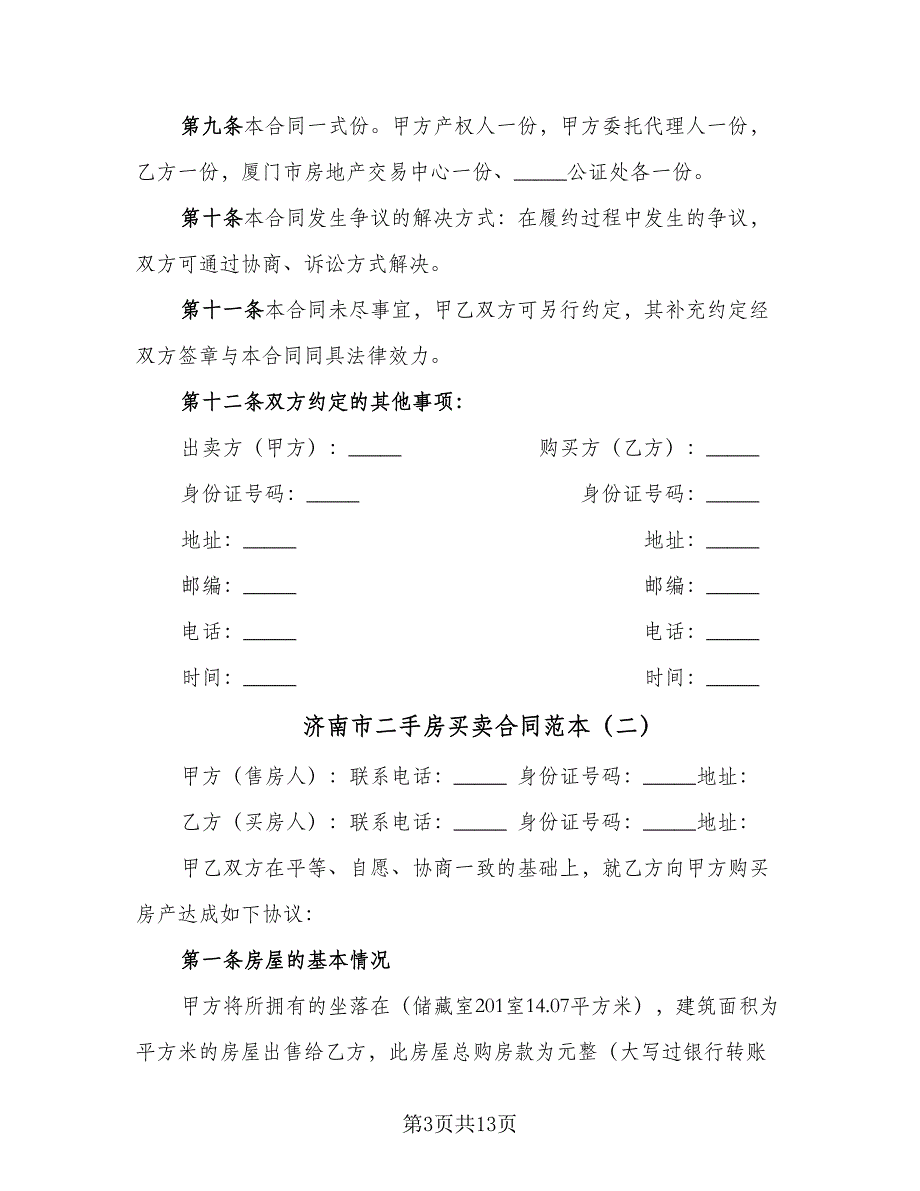 第九条本合同一式份。甲方产权人一份，甲方委托代理人一份，
乙方一份，厦门市房地产交易中心一份、_____公证处各一份。
第十条本合同发生争议的解决方式：在履约过程中发生的争议，
双方可通过协商、诉讼方式解决。
第十一条本合同未尽事宜，甲乙双方可另行约定，其补充约定经
双方签章与本合同同具法律效力。
第十二条双方约定的其他事项：
出卖方（甲方）：_____ 购买方（乙方）：_____
身份证号码：_____ 身份证号码：_____
地址：_____ 地址：_____
邮编：_____ 邮编：_____
电话：_____ 电话：_____
时间：_____ 时间：_____
济南市二手房买卖合同范本（二）
甲方（售房人）：联系电话：_____ 身份证号码：_____地址：
乙方（买房人）：联系电话：_____ 身份证号码：_____地址：
甲乙双方在平等、自愿、协商一致的基础上，就乙方向甲方购买
房产达成如下协议：
第一条房屋的基本情况
甲方将所拥有的坐落在（储藏室201室14.07平方米），建筑面积为
平方米的房屋出售给乙方，此房屋总购房款为元整（大写过银行转账
第3页共13页